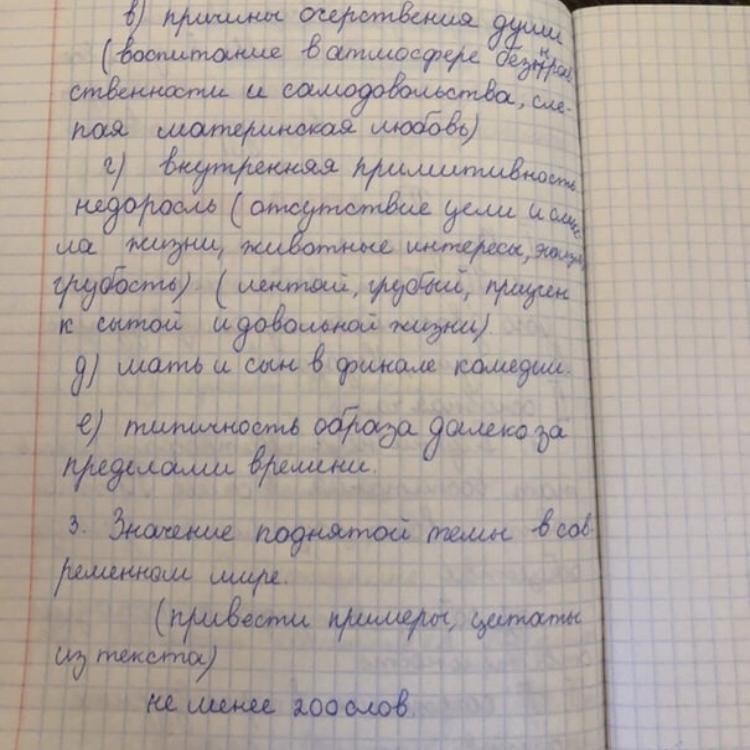 в) причины очерствения души
(воспитание в атмосфере безнрав
ственности и самодовольства, сле-
пая материнская любовь)
г) внутренняя примитивность
недоросль (отсутствие цели и смыс
ла жизни, животные интересы,
грубость) (лентяй, грубый,
к сытой и довольной жизни).
д) мать и сын в финале комедии.
е) типичность образа далеко за
пределами времени.
3. Значение поднятой темы в сов
ременном мире.
(привести примеры, цитаты
из текста)
не менее 200 слов.